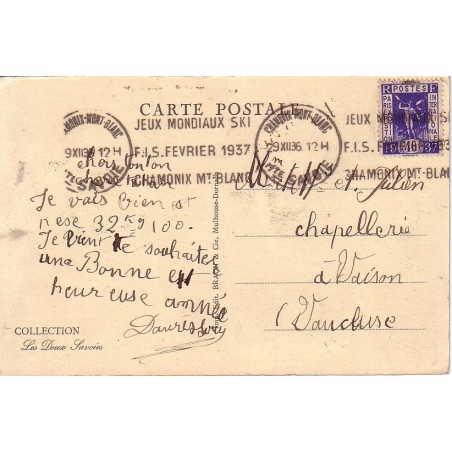 CARTE POSTALE
CHAMONIX-MONT-BLANC
9 XII 36 12 H
HTE SAVOIE
JEUX MONDIAUX SKI
F.I.S. FEVRIER 1937
CHAMONIX MT-BLANC
CHAMONIX-MONT-BLANC
9 XII 36 12 H
HTE SAVOIE
JEUX MONDIAUX SKI
F.I.S. FEVRIER 1937
CHAMONIX MT-BLANC
POSTES
Je vais bien et
pese 32 Kg 100.
Je vient te souhaiter
une Bonne et
heureuse année
et Julien
chapellerie
à Vaison
(Vaucluse)
BRAUN & Cie, Mulhouse-Dornach
COLLECTION
Les Deux Savoies